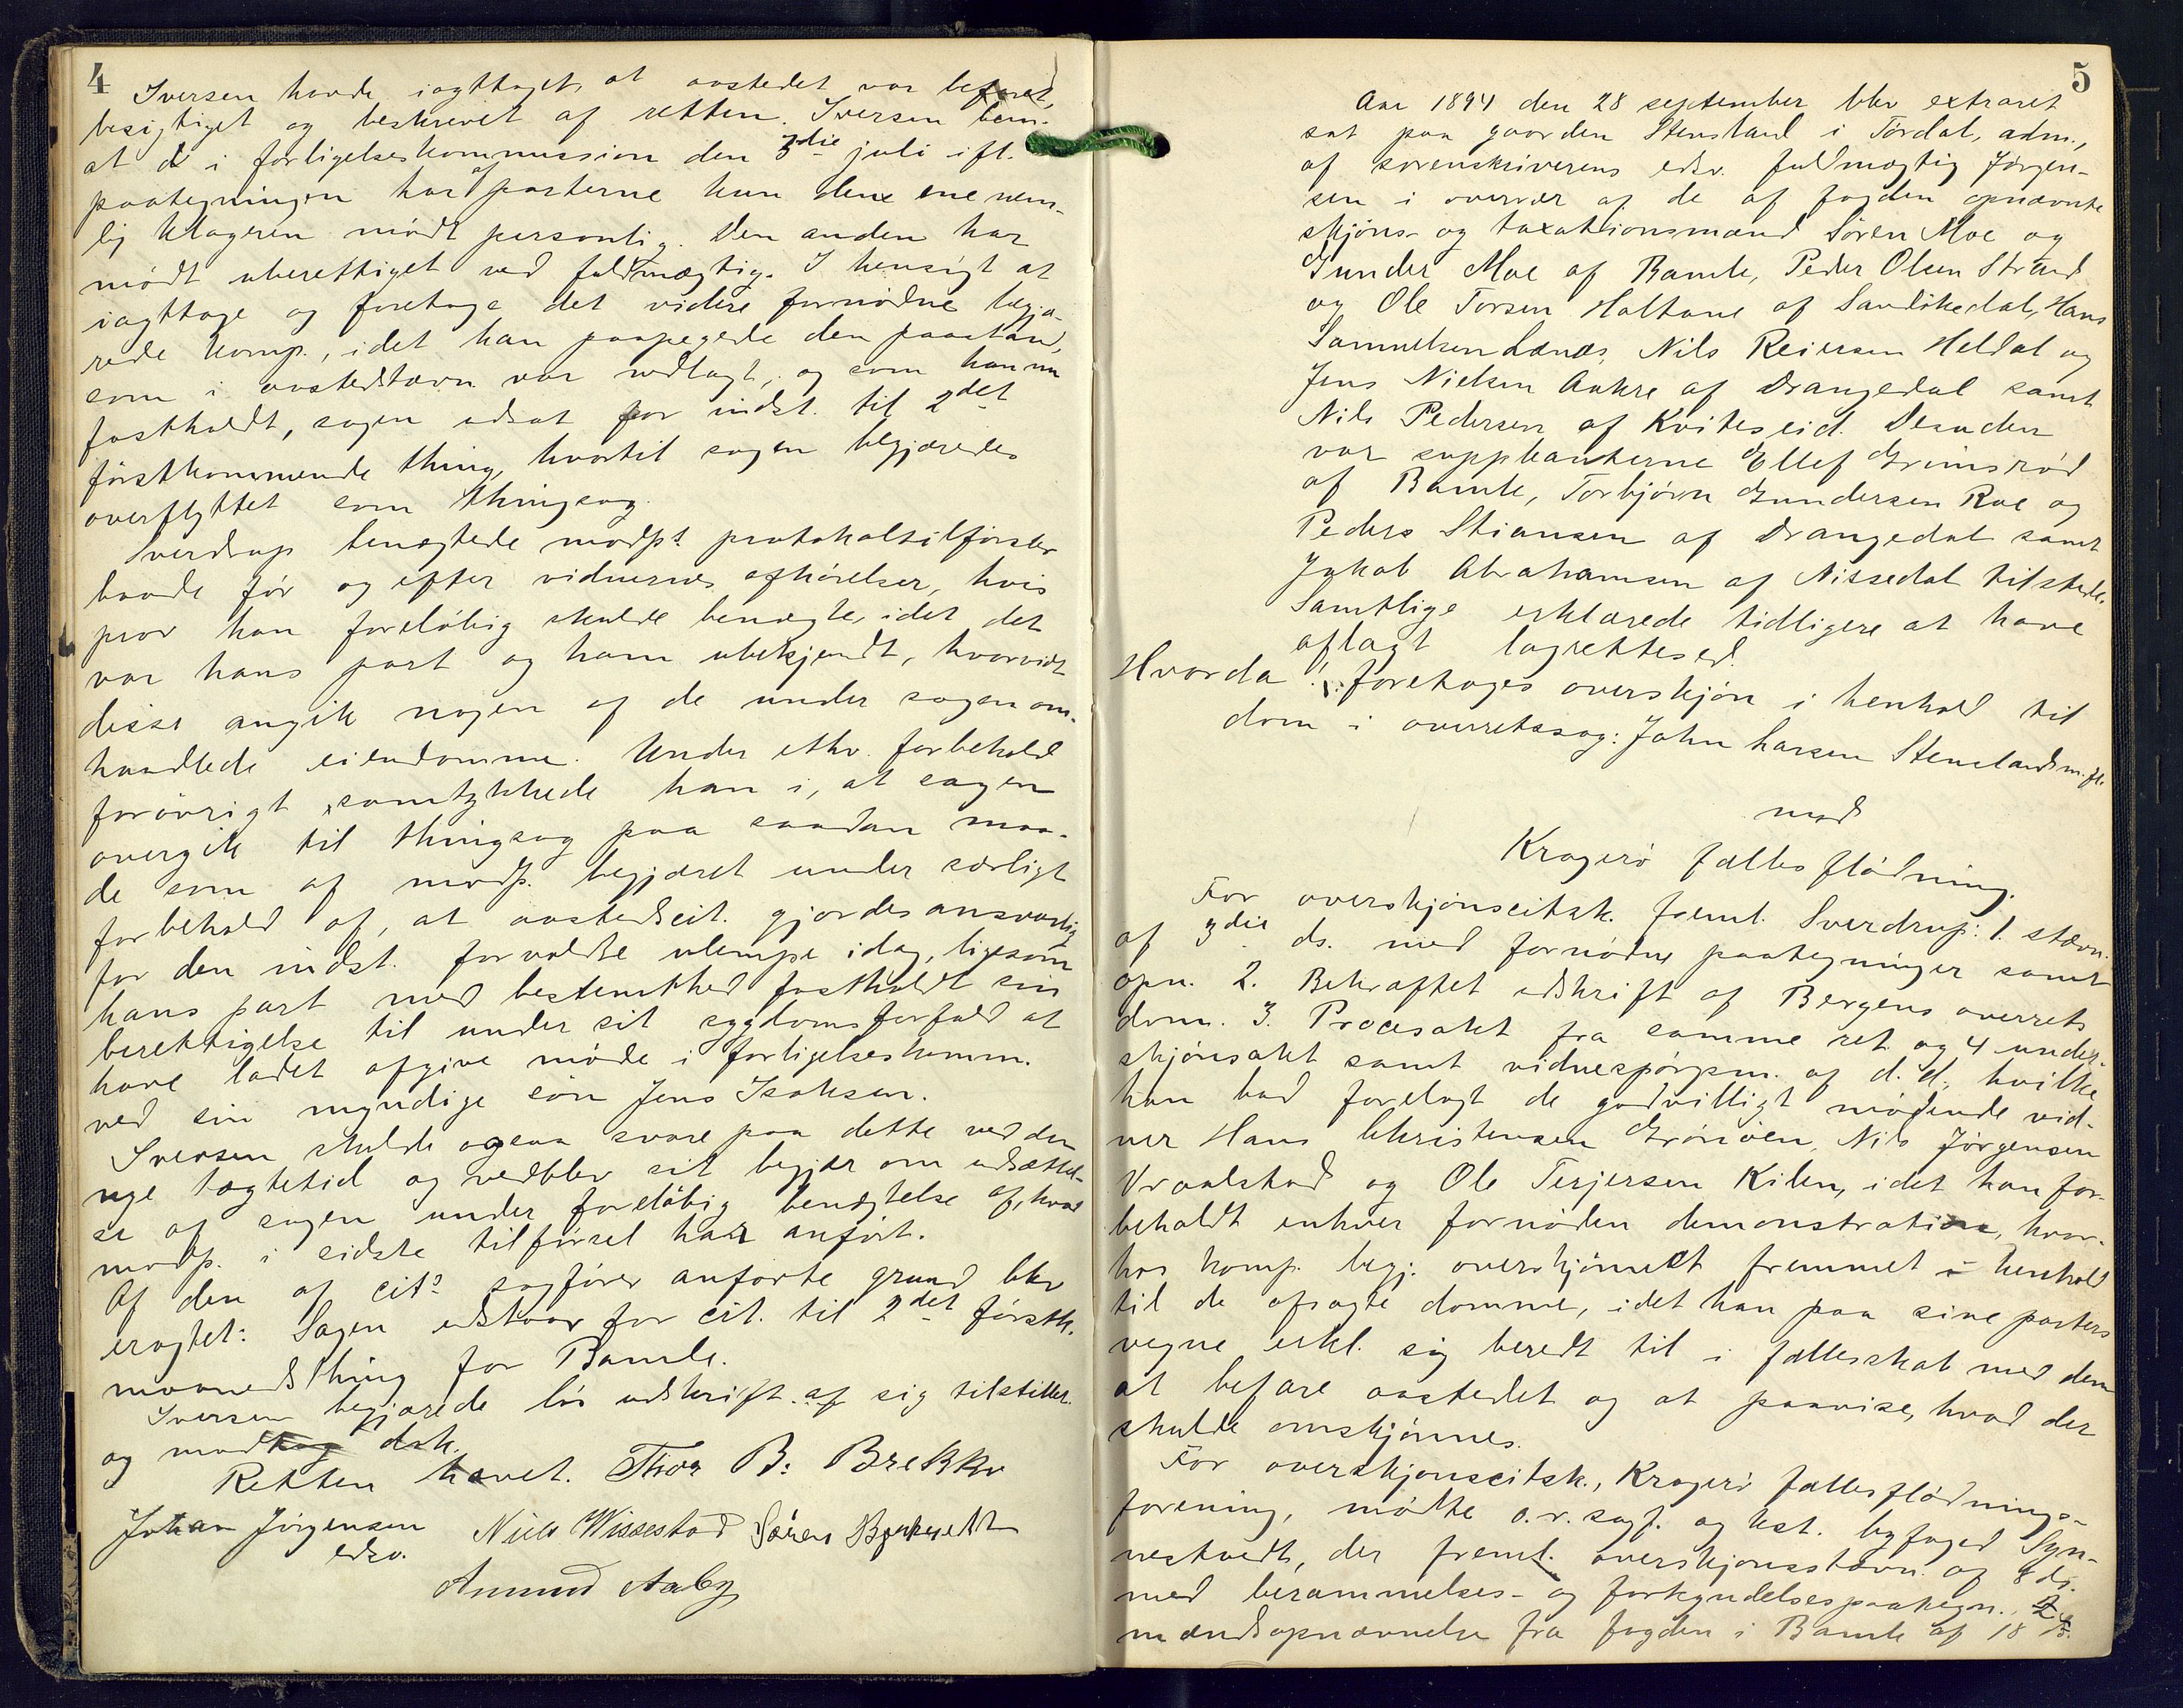 4
Iversen havde iagttaget, at aastedet var befaret,
besigtiget og beskrevet af retten. Iversen bem.
at d i forligelseskommission den 3die juli ifl.
paategningen har af parterne kun den ene nem-
lig klageren mødt personlig. Den anden har
mødt uberettiget ved fuldmægtig. I hensigt at
iagttage og foretage det videre fornødne begjæ-
rede komp., idet han paapegede den paastand,
som i aastedstævn. var nedlagt, og som han nu
fastholdt, sagen udsat for indst. til 2det
førstkommende thing, hvortil sagen begjæredes
overflyttet som thingsag.
Sverdrup benægtede modp.s protokoltilførsler
baade før og efter vidnernes afhørelser, hvis
prov han foreløbig skulde benægte, idet det
var hans part og ham ubekjendt, hvorvidt
disse angik nogen af de under sagen om-
handlede eiendomme. Under ethv. forbehold
forøvrigt samtykkede han i, at sagen
overgik til thingsag paa saadan maa-
de som af modp. begjæret under særligt
forbehold af, at aastedscit. gjordes ansvarlig
for den indst. forvoldte ulempe idag, ligesom
hans part med bestemthed fastholdt sin
berettigelse til under sit sygdomsforfald at
have ladet afgive møde i forligelseskomm.
ved sin myndige søn Jens Isaksen.
Iversen skulde ogsaa svare paa dette ved den
nye tægtetid og vedblev sit begjær om udsættel-
se af sagen under foreløbig benægtelse af, hvad
modp. i sidste tilførsel har anført.
Af den af cits sagfører anførte grund blev
eragtet: Sagen udstaar for cit. til 2det førstk.
maanedsthing for Bamle.
Iversen begjærede løs udskrift af sig tilstillet
og modtog dsk.
Retten hævet. Thor B: Brekke
Johan Jørgensen Niels Wissestad Søren
edsv.
Amund Aaby
5
Aar 1894 den 28 september blev extraret
sat paa gaarden Stensland i Tørdal, adm.,
af sorenskriverens edsv. fuldmægtig Jørgen-
sen i overvær af de af fogden opnævnte
skjøns- og taxationsmænd Søren Moe og
Gunder Moe af Bamle, Peder Olsen Strand
og Ole Torsen Holtane af Sandøkedal, Hans
Samuelsen Lønæs, Nils Reiersen Heldal og
Jens Nielsen Aakre af Drangedal samt
Nils Pedersen af Kviteseid. Desuden
var supplianterne Ellef Grimsrød
af Bamle, Torbjørn Gundersen Roe og
Peders Stiansen af Drangedal samt
Jakob Abrahamsen af Nissedal tilstede.
Samtlige erklærede tidligere at have
aflagt lagrettesed.
Hvorda foretoges overskjøn i henhold til
dom i overretssag: John Larsen Stenslands m. fl.
mod
Kragerø fælles flødning.
For overskjønscitsk. freml. Sverdrup: 1. stævn.
af 3die ds. med fornødne paategninger samt
opn. 2. Bekræftet udskrift af Bergens overrets
dom. 3. Procesakt fra samme ret og 4 under-
skjønsakt samt vidnespørgsm. af d. d., hvilke
han bad forelagt de godvilligt mødende vid-
ner Hans Christensen Grønøen, Nils Jørgensen
Vraalstad og Ole Terjersen Kilen, idet han for-
beholdt enhver fornøden demonstration, hvor-
hos komp. begj. overskjønnet fremmet i henhold
til de afsagte domme, idet han paa sine parters
vegne erkl. sig beredt til i fællesskab med dem
at befare aastedet og at paavise, hvad der
skulde omskjønnes.
For overskjønscitsk., Kragerø fællesflødnings-
forening, mødte o.r.sagf. og kst. byfoged Syn-
nestvedt, der freml. overskjønsstævn. af 8 ds.
med berammelses- og forkyndelsespaategn., 2
mændsopnævnelse fra fogden i Bamle af 18